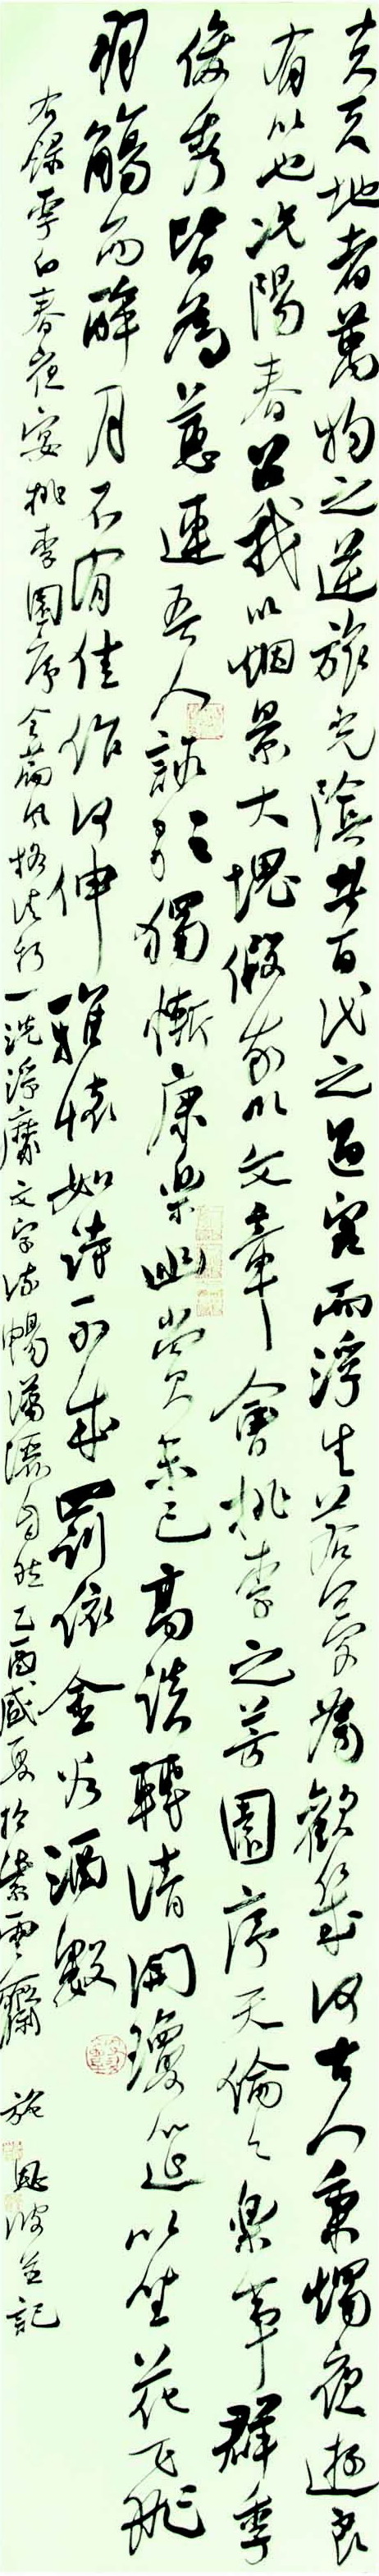 夫天地者萬物之逆旅光陰者百代之過客而浮生若夢為歡幾何古人秉燭夜遊良
有以也況陽春召我以烟景大塊假我以文章會桃李之芳園序天倫之樂事群季
俊秀皆為惠連吾人詠歌獨慚康樂幽賞未已高談轉清開瓊筵以坐花飛
羽觴而醉月不有佳作何伸雅懷如詩不成罰依金谷酒數
右錄李白春夜宴桃李園序全篇風格清新一洗浮靡文字流暢瀟灑自然乙酉盛夏於紫雲齋 施恩波並記